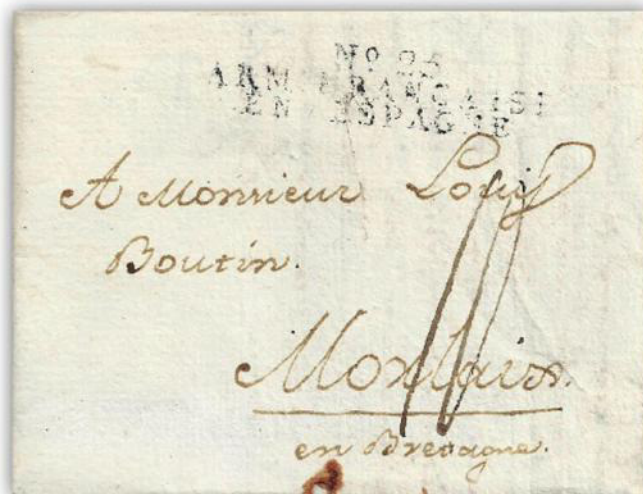 No 25
ARM. FRANÇAISE
EN ESPAGNE
A Monsieur Louis
Boutin.
Morlaix.
en Bretagne.